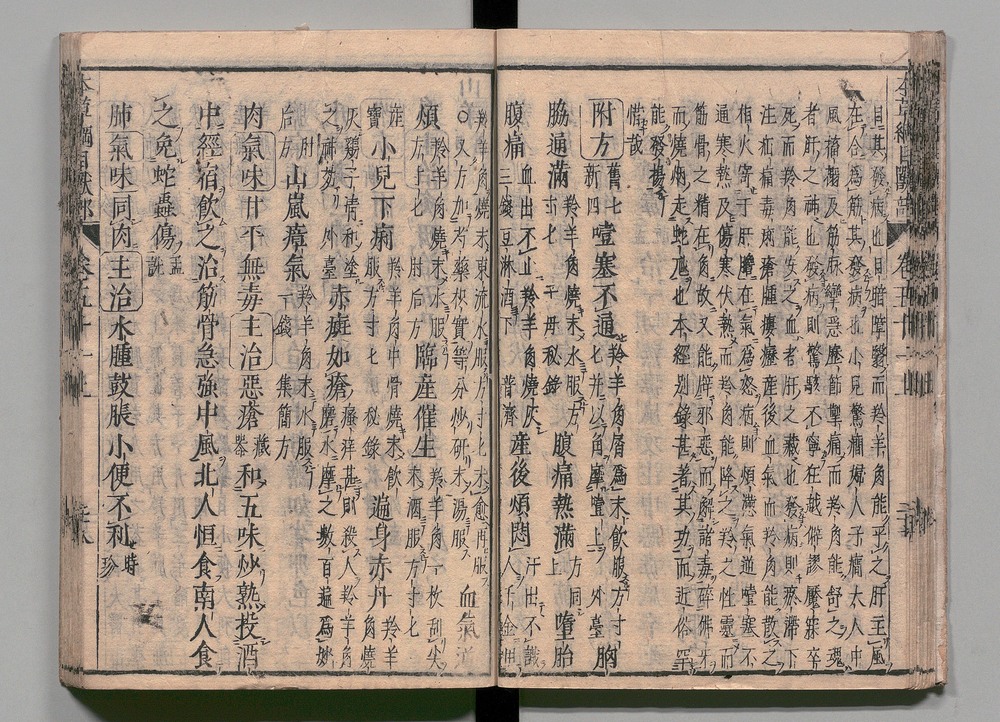 目其發病也目暗障翳而羚羊角能平之肝主風
在合為筋其發病也小兒驚癇婦人子癇大人中
風搐搦及筋脉攣急歷節掣痛而羚角能舒之魂
者肝之神也發病則驚駭不寧狂越僻謬魘寐卒
死而羚角能安之血者肝之藏也發病則瘀滯下
注疝痛毒痢瘡腫瘻癧產後血氣而羚角能散之
相火寄于肝膽在氣為怒病則煩懣氣逆噎塞不
通寒熱及傷寒伏熱而羚角能降之羚之性靈而
筋骨之精在角故又能辟邪惡而解諸毒碎佛牙
而燒烟走蛇虺也本經別錄甚著其功而近俗罕
能發揚
惜哉
附方 舊七
新四 噎塞不通 羚羊角屑為末飲服方寸
匕并以角摩噎上 外臺 胸
脇逼滿 羚羊角燒末水服方
寸匕 千毋秘錄 腹痛熱滿 方同
上 墮胎
腹痛 血出不止羚羊角燒灰
三錢豆淋酒下 普濟 產後煩悶 汗出不識
人
羚羊角燒末東流水服方寸匕未愈再服
○又方加芍藥枳實等分炒研末湯服 血氣逆
煩 羚羊角燒末水服
方寸匕 肘后方 臨產催生 羚羊角一枚刮尖
末酒服方寸匕
產
寶 小兒下痢 羚羊角中骨燒末飲
服方寸匕 秘錄 遍身赤丹 羚羊
角燒
灰雞子清和塗
之神効 外臺 赤斑如瘡 瘙痒甚則殺人羚羊角
磨水摩之數百遍為妙
肘后 山嵐瘴氣 羚羊角末水服
一錢 集簡方
肉氣味甘平無毒主治惡瘡 藏
器 和五味炒熟投酒
中經宿飲之治筋骨急強中風北人恒食南人食
之免蛇蟲傷 孟
詵
肺氣味同肉主治水腫鼓脹小便不利 時
珍